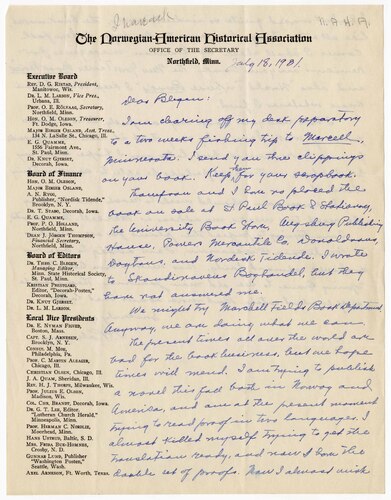 N.A.H.A.
The Norwegian-American Historical Association
OFFICE OF THE SECRETARY
Northfield, Minn.
July 18, 1931.
Executive Board
REV. D. G. RISTAD, President,
Manitowoc, Wis.
DR. L. M. LARSON, Vice Pres.,
Urbana, Ill.
PROF. O. E. RÖLVAAG, Secretary,
Northfield, Minn.
HON. O. M. OLESON, Treasurer,
Ft. Dodge, Iowa.
MAJOR BIRGER OSLAND, Asst. Treas.
134 N. LaSalle St., Chicago, Ill.
E. G. QUAMME,
1596 Fairmont Ave.
St. Paul, Minn.
DR. KNUT GJERSET,
Decorah, Iowa.
Board of Finance
HON. O. M. OLESON,
MAJOR BIRGER OSLAND,
A. N. RYGG,
Publisher, "Nordisk Tidende,"
Brooklyn, N. Y.
DR. T. STABO, Decorah, Iowa.
E. G. QUAMME,
St. Paul, Minn.
PROF. P. O. HOLLAND,
Northfield, Minn.
DEAN J. JÖRGEN THOMPSON,
Financial Secretary,
Northfield, Minn.
Board of Editors
DR. THEO. C. BLEGEN,
Managing Editor,
Minn. State Historical Society,
St. Paul, Minn.
KRISTIAN PRESTGARD,
Editor, "Decorah-Posten,"
Decorah, Iowa.
DR. KNUT GJERSET,
DR. L. M. LARSON.
Local Vice Presidents
DR. E. NYMAN FIGVED,
Boston, Mass.
CAPT. S. J. ARNESEN,
Brooklyn, N. Y.
CONSUL M. MOE
Philadelphia, Pa.
PROF. C. MARIUS ALBAUM,
Chicago, Ill.
CHRISTIAN OLSEN, Chicago, Ill.
J. A. QUAM, Sheridan, Ill.
REV. H. J. THORPE, Milwaukee, Wis.
PROF. JULIUS E. OLSON,
Madison, Wis.
COL. CHR. BRANDT, Decorah, Iowa.
DR. G. T. LEE, Editor,
"Lutheran Church Herald,"
Minneapolis, Minn.
PROF. HERMAN C. NORDLIE,
Moorhead, Minn.
HANS USTRUD, Baltic, S. D.
MRS. FRIDA BUE-HOMNES,
Crosby, N. D.
GUNNAR LUND, Publisher
"Washington Posten,"
Seattle, Wash.
AXEL ARNESON, Ft. Worth, Texas.
Dear Blegen:
I am clearing off my desk preparatory
to a two weeks fishing trip to Marcell,
Minnesota. I send you three clippings
on your book. Keep for your scrapbook.
Thompson and I have placed the
book on sale at St Paul Book & Stationery,
the University Book Store, Augsburg Publishing
House, Powers Mercantile Co, Donaldsons,
Daytons, and Nordisk Tidende. I wrote
to Skandinavens Boghandel, but they
have not answered me.
We might try Marshall Fields Book Department
Anyway, we are doing what we can.
The present times all over the world are
bad for the book business. But we hope
times will mend. I am trying to publish
a novel this fall both in Norway and
America, and am at the present moment
trying to read proof in two languages. I
almost killed myself trying to get the
translation ready, and now I have the
double set of proofs. Now I almost wish